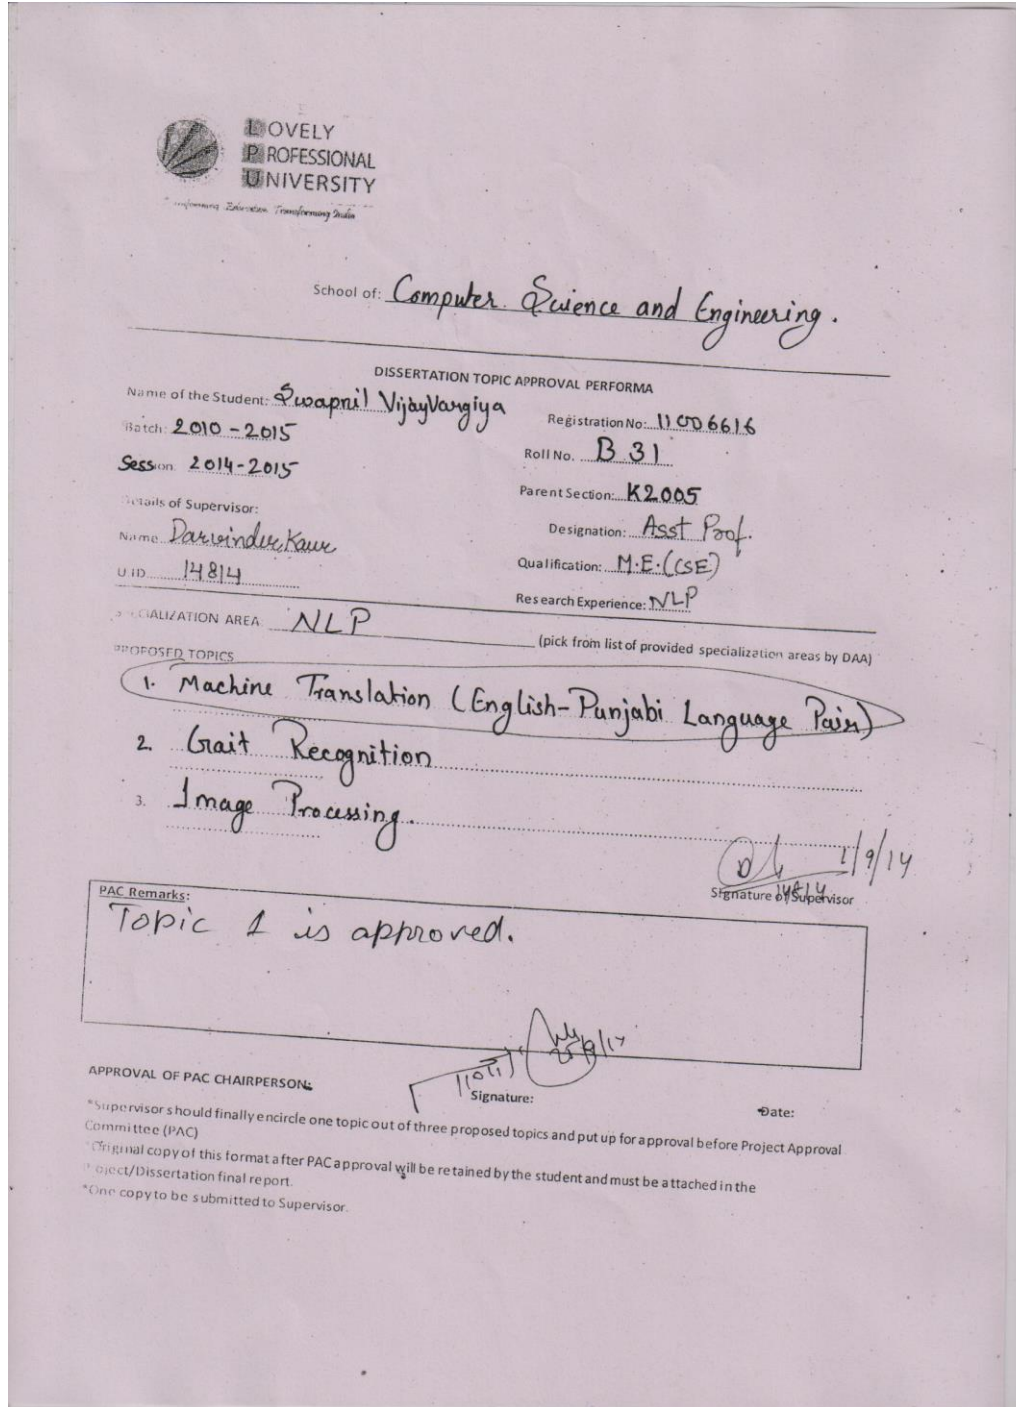 LOVELY
PROFESSIONAL
UNIVERSITY
Transforming Education Transforming India
School of: Computer Science and Engineering.
DISSERTATION TOPIC APPROVAL PERFORMA
Name of the Student: Swapnil VijayVargiya Registration No: 11006616
Batch: 2010-2015 Roll No. B 31
Session: 2014-2015 Parent Section: K2005
Details of Supervisor: Designation: Asst Prof.
Name Darwinder Kaur Qualification: M.E.(CSE)
U.ID 14814 Research Experience: NLP
SPECIALIZATION AREA: NLP (pick from list of provided specialization areas by DAA)
PROPOSED TOPICS
1. Machine Translation (English-Punjabi Language Pair)
2. Gait Recognition
3. Image Processing.
1/9/14
Signature of Supervisor
PAC Remarks:
Topic 1 is approved.
APPROVAL OF PAC CHAIRPERSON: Signature: Date:
*Supervisor should finally encircle one topic out of three proposed topics and put up for approval before Project Approval
Committee (PAC)
*Original copy of this format after PAC approval will be retained by the student and must be attached in the
Project/Dissertation final report.
*One copy to be submitted to Supervisor.